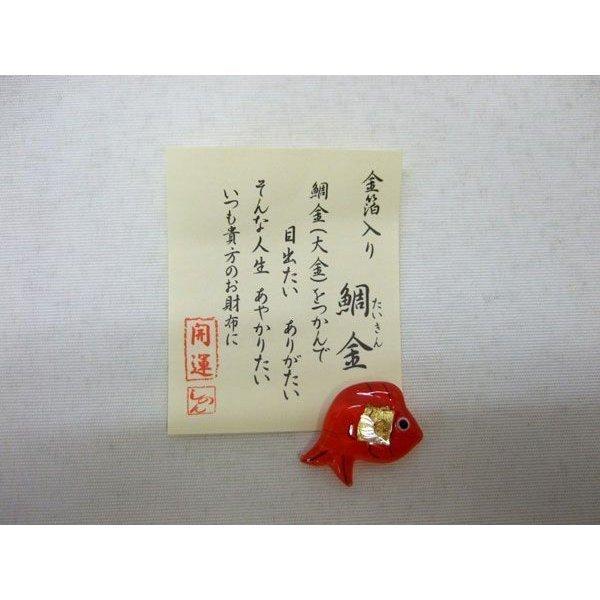 金箔入り
鯛金
たいきん
鯛金(大金)をつかんで
目出たい ありがたい
そんな人生 あやかりたい
いつも貴方のお財布に
開運